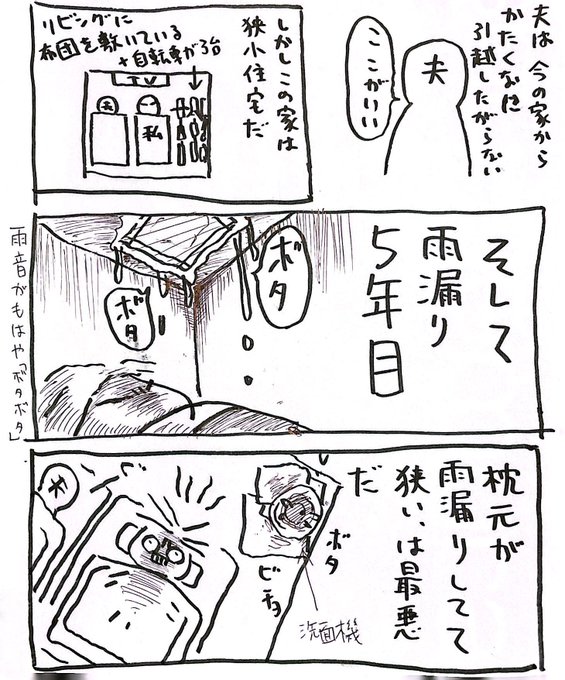 夫は今の家から
かたくなに
引越したがらない
夫
ここがいい
しかしこの家は
狭小住宅だ
リビングに
布団を敷いている
+自転車が3台
TV
夫
私
そして
雨漏り
5年目
ボタ
ボタ
雨音がもはや「ボタボタ」
枕元が
雨漏りしてて
狭い、は最悪
だ
ボタ
ビチョ
洗面機
夫